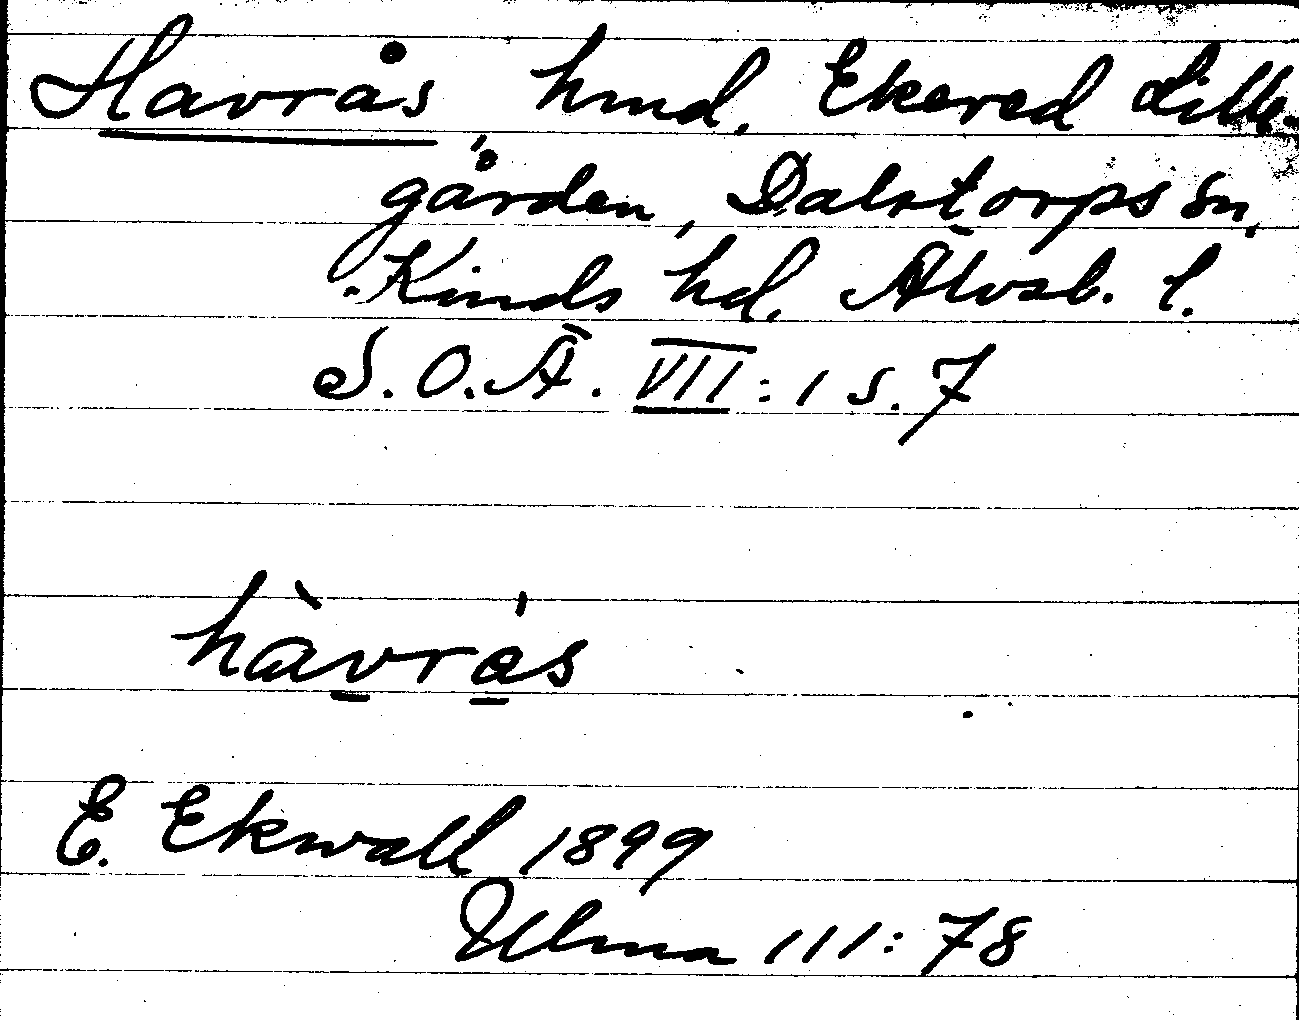 Havrås hmd. Ekered Lille-
gården, Dalstorps sn,
Kinds hd. Älvsb. l.
S.O.Ä. VII : 1 s. 7
hàvrás
E. Ekwall 1899
Ulma 111:78